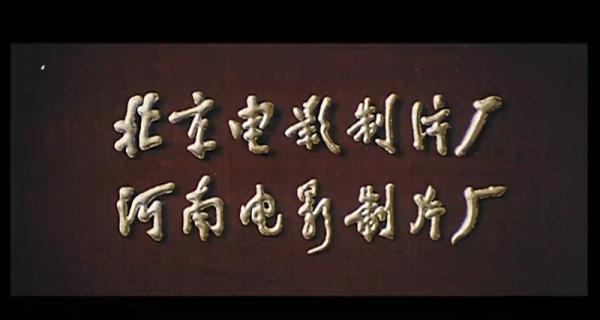 北京电影制片厂
河南电影制片厂